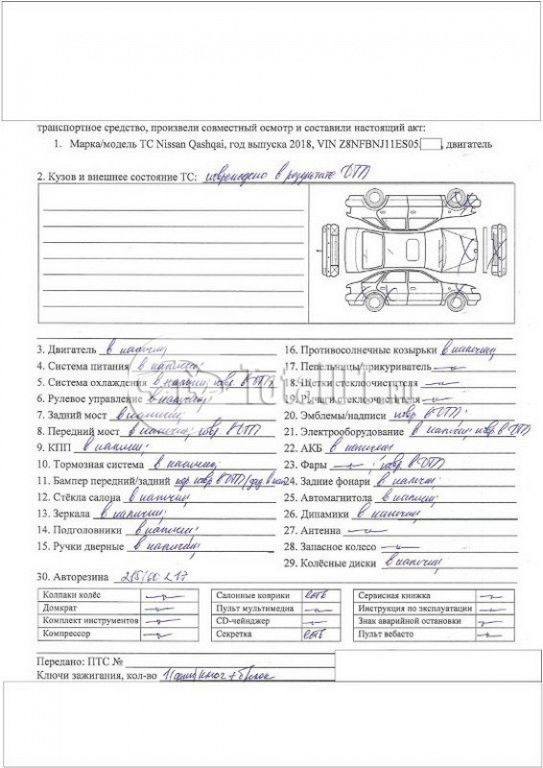 транспортное средство, произвели совместный осмотр и составили настоящий акт:
1. Марка/модель ТС Nissan Qashqai, год выпуска 2018, VIN Z8NFBNJ11ES05, двигатель
2. Кузов и внешнее состояние ТС: повреждено в результате ДТП
3. Двигатель в наличии 16. Противосолнечные козырьки в наличии
4. Система питания в наличии 17. Пепельницы/прикуриватель
5. Система охлаждения в наличии, повр. в ДТП 18. Щетки стеклоочистителя
6. Рулевое управление в наличии; 19. Рычаги стеклоочистителя
7. Задний мост в наличии; 20. Эмблемы/надписи повр. в ДТП
8. Передний мост в наличии; повр. в ДТП 21. Электрооборудование в наличии, повр. в ДТП
9. КПП в наличии; 22. АКБ в наличии
10. Тормозная система в наличии; 23. Фары ; повр. в ДТП
11. Бампер передний/задний повр. в ДТП 24. Задние фонари в наличии
12. Стёкла салона в наличии; 25. Автомагнитола в наличии;
13. Зеркала в наличии; 26. Динамики в наличии;
14. Подголовники в наличии; 27. Антенна
15. Ручки дверные в наличии; 28. Запасное колесо
29. Колёсные диски в наличии;
30. Авторезина 215/60 R17
Колпаки колёс Салонные коврики есть Сервисная книжка
Домкрат Пульт мультимедиа Инструкция по эксплуатации
Комплект инструментов CD-чейнджер Знак аварийной остановки
Компрессор Секретка есть Пульт вебасто
Передано: ПТС №
Ключи зажигания, кол-во 1 (один) ключ + брелок